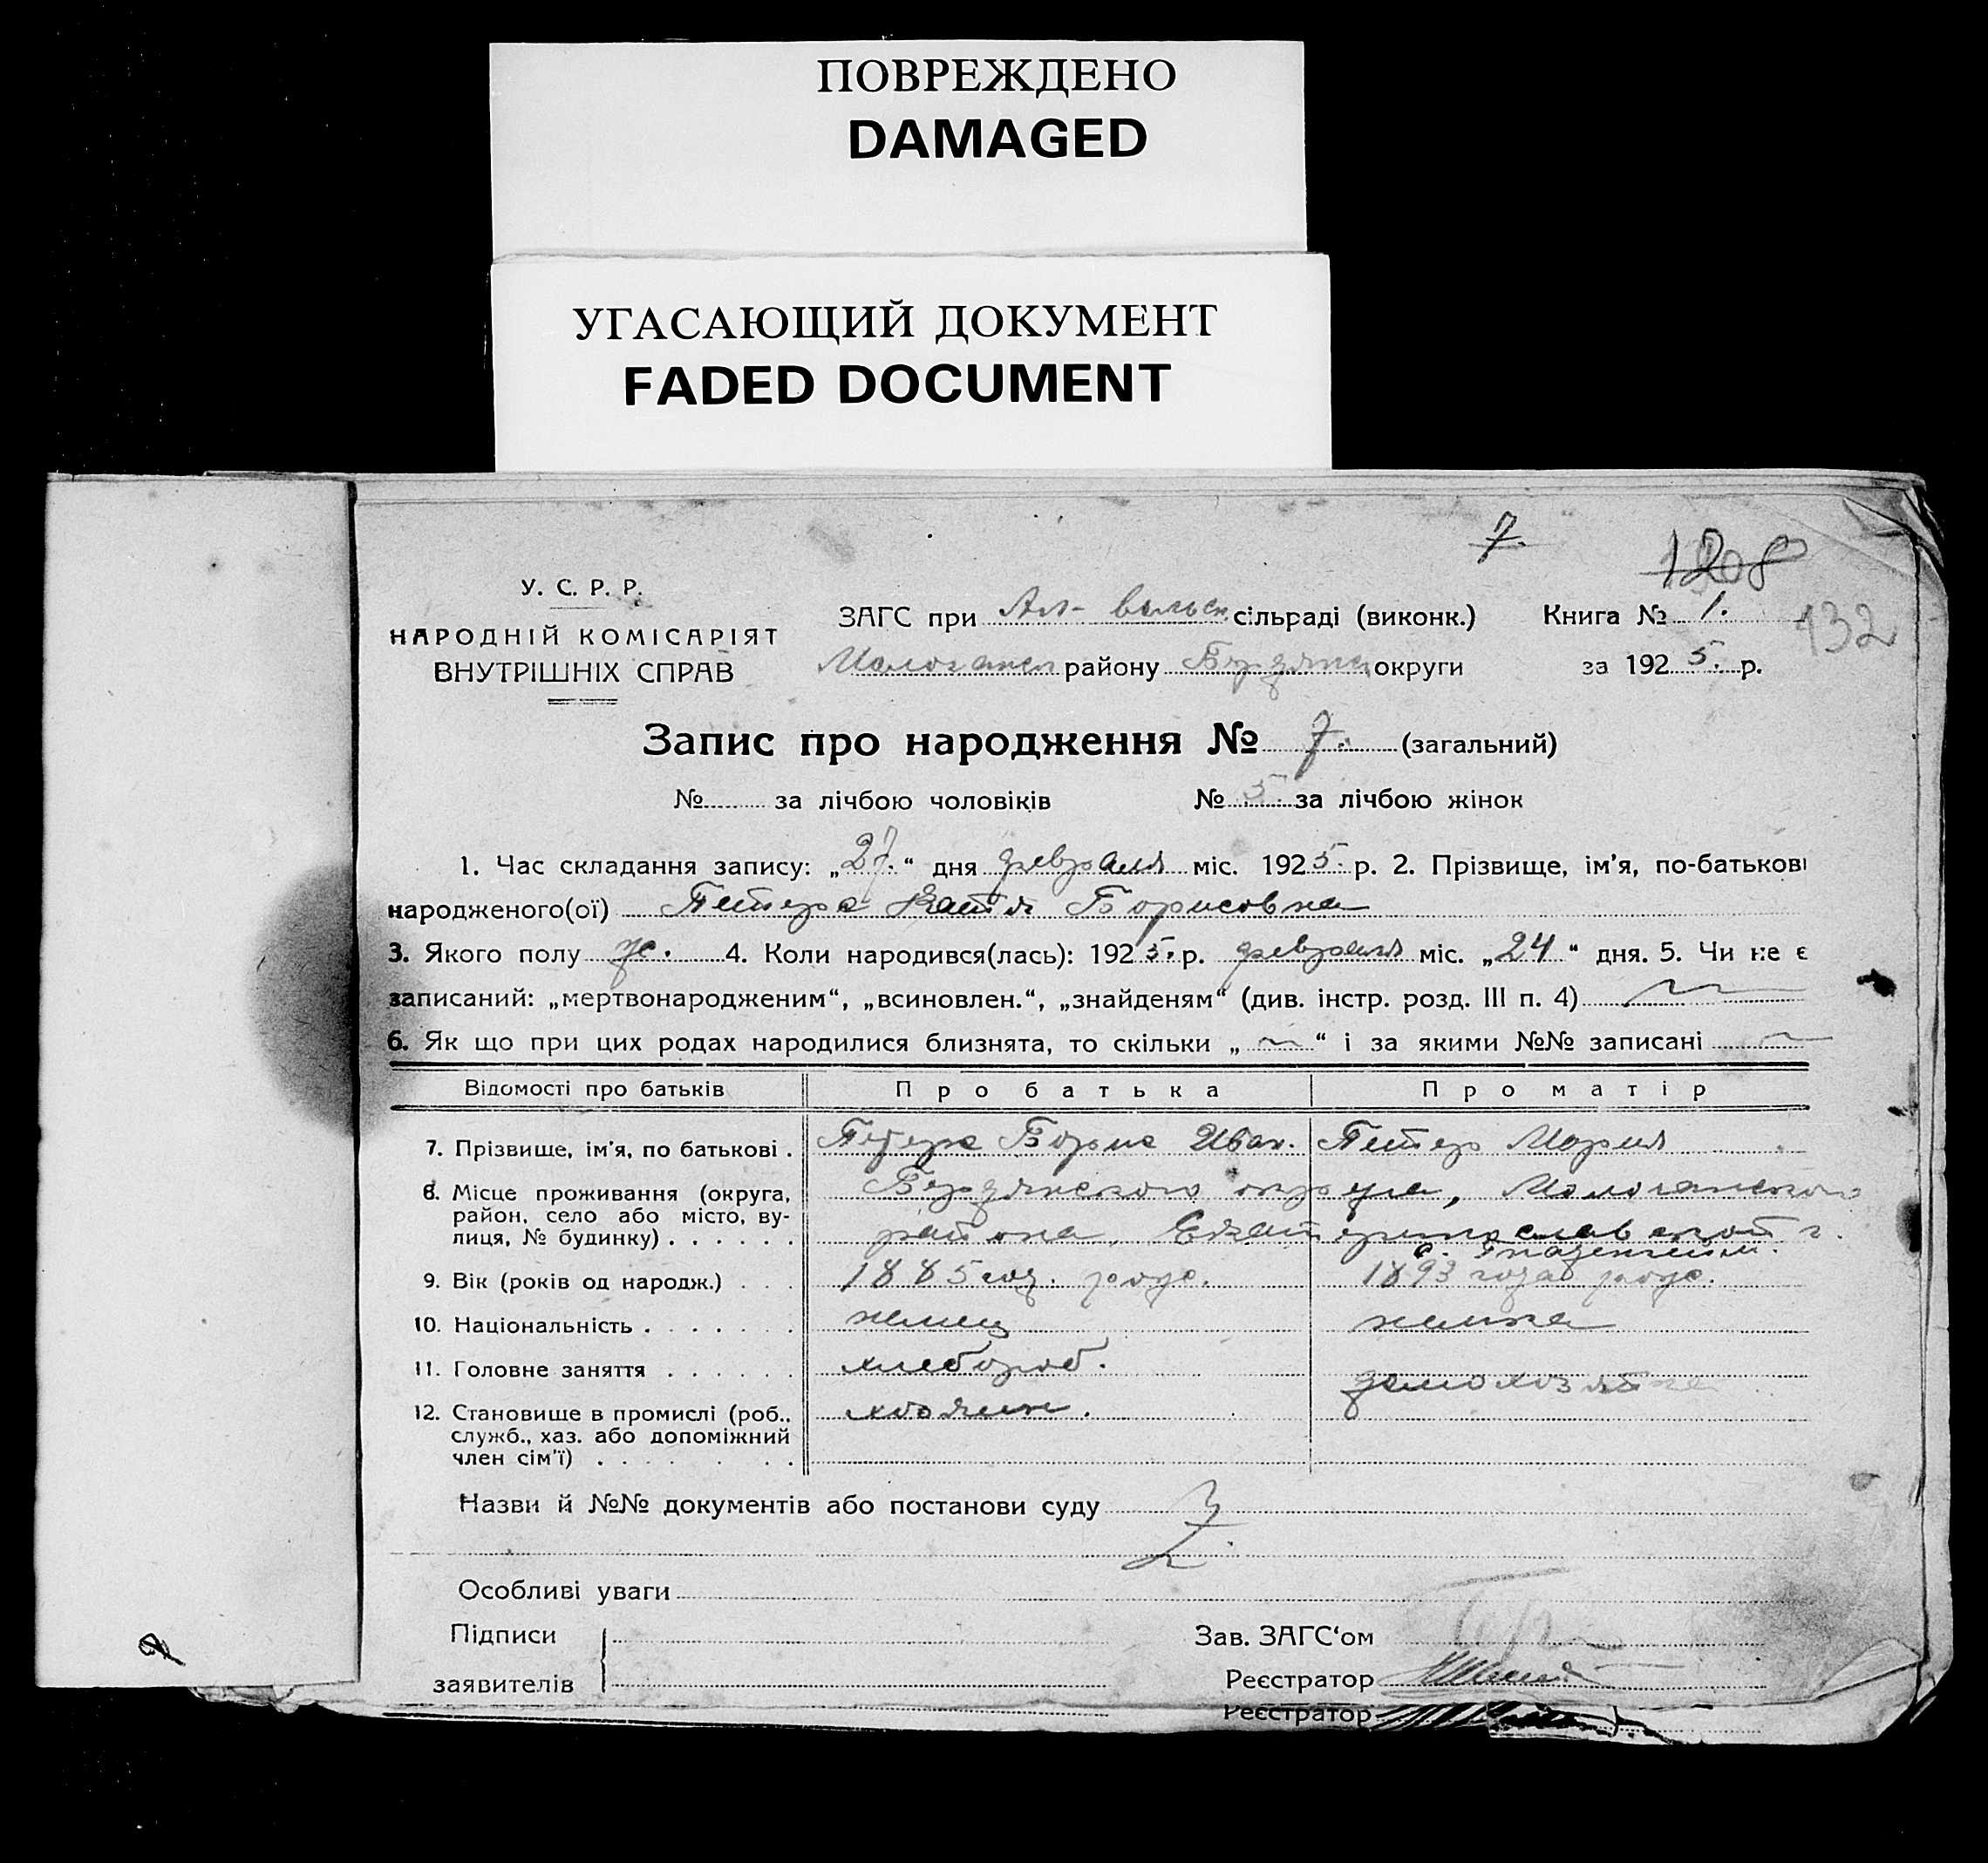 ПОВРЕЖДЕНО
DAMAGED
УГАСАЮЩИЙ ДОКУМЕНТ
FADED DOCUMENT
7.
1208
132
У. С. Р. Р.
НАРОДНІЙ КОМІСАРІЯТ
ВНУТРІШНІХ СПРАВ
ЗАГС при сільраді (виконк.) Книга № 1.
району округи за 1925. р.
Запис про народження № 7. (загальний)
№ за лічбою чоловіків № 5. за лічбою жінок
1. Час складання запису: „27.“ дня февраля міс. 1925. р. 2. Прізвище, ім'я, по-батькові
народженого(ої) Петерс Катя Борисовна
3. Якого полу ж. 4. Коли народився(лась): 1925. р. февраля міс. „24“ дня. 5. Чи не є
записаний: „мертвонародженим“, „всиновлен.“, „знайденям“ (див. інстр. розд. III п. 4)
6. Як що при цих родах народилися близнята, то скільки „ “ і за якими №№ записані
Відомості про батьків Про батька Про матір
7. Прізвище, ім'я, по батькові . Петерс Борис Иван. Петерс Мария
8. Місце проживання (округа, Бердянского округа, Молочанского
район, село або місто, ву-
лиця, № будинку) . . . . . . района, Екатеринославской г.
с. Гнаденгейм.
9. Вік (років од народж.) . . . 1885 год. рожд. 1893 года рожд.
10. Національність . . . . . . . немец немка
11. Головне заняття . . . . . . хлебороб. домохозяйка
12. Становище в промислі (роб., хозяин.
служб., хаз. або допоміжний
член сім'ї) . . . . . . .
Назви й №№ документів або постанови суду
Особливі уваги
Підписи Зав. ЗАГС‘ом
заявителів Реєстратор
Реєстратор